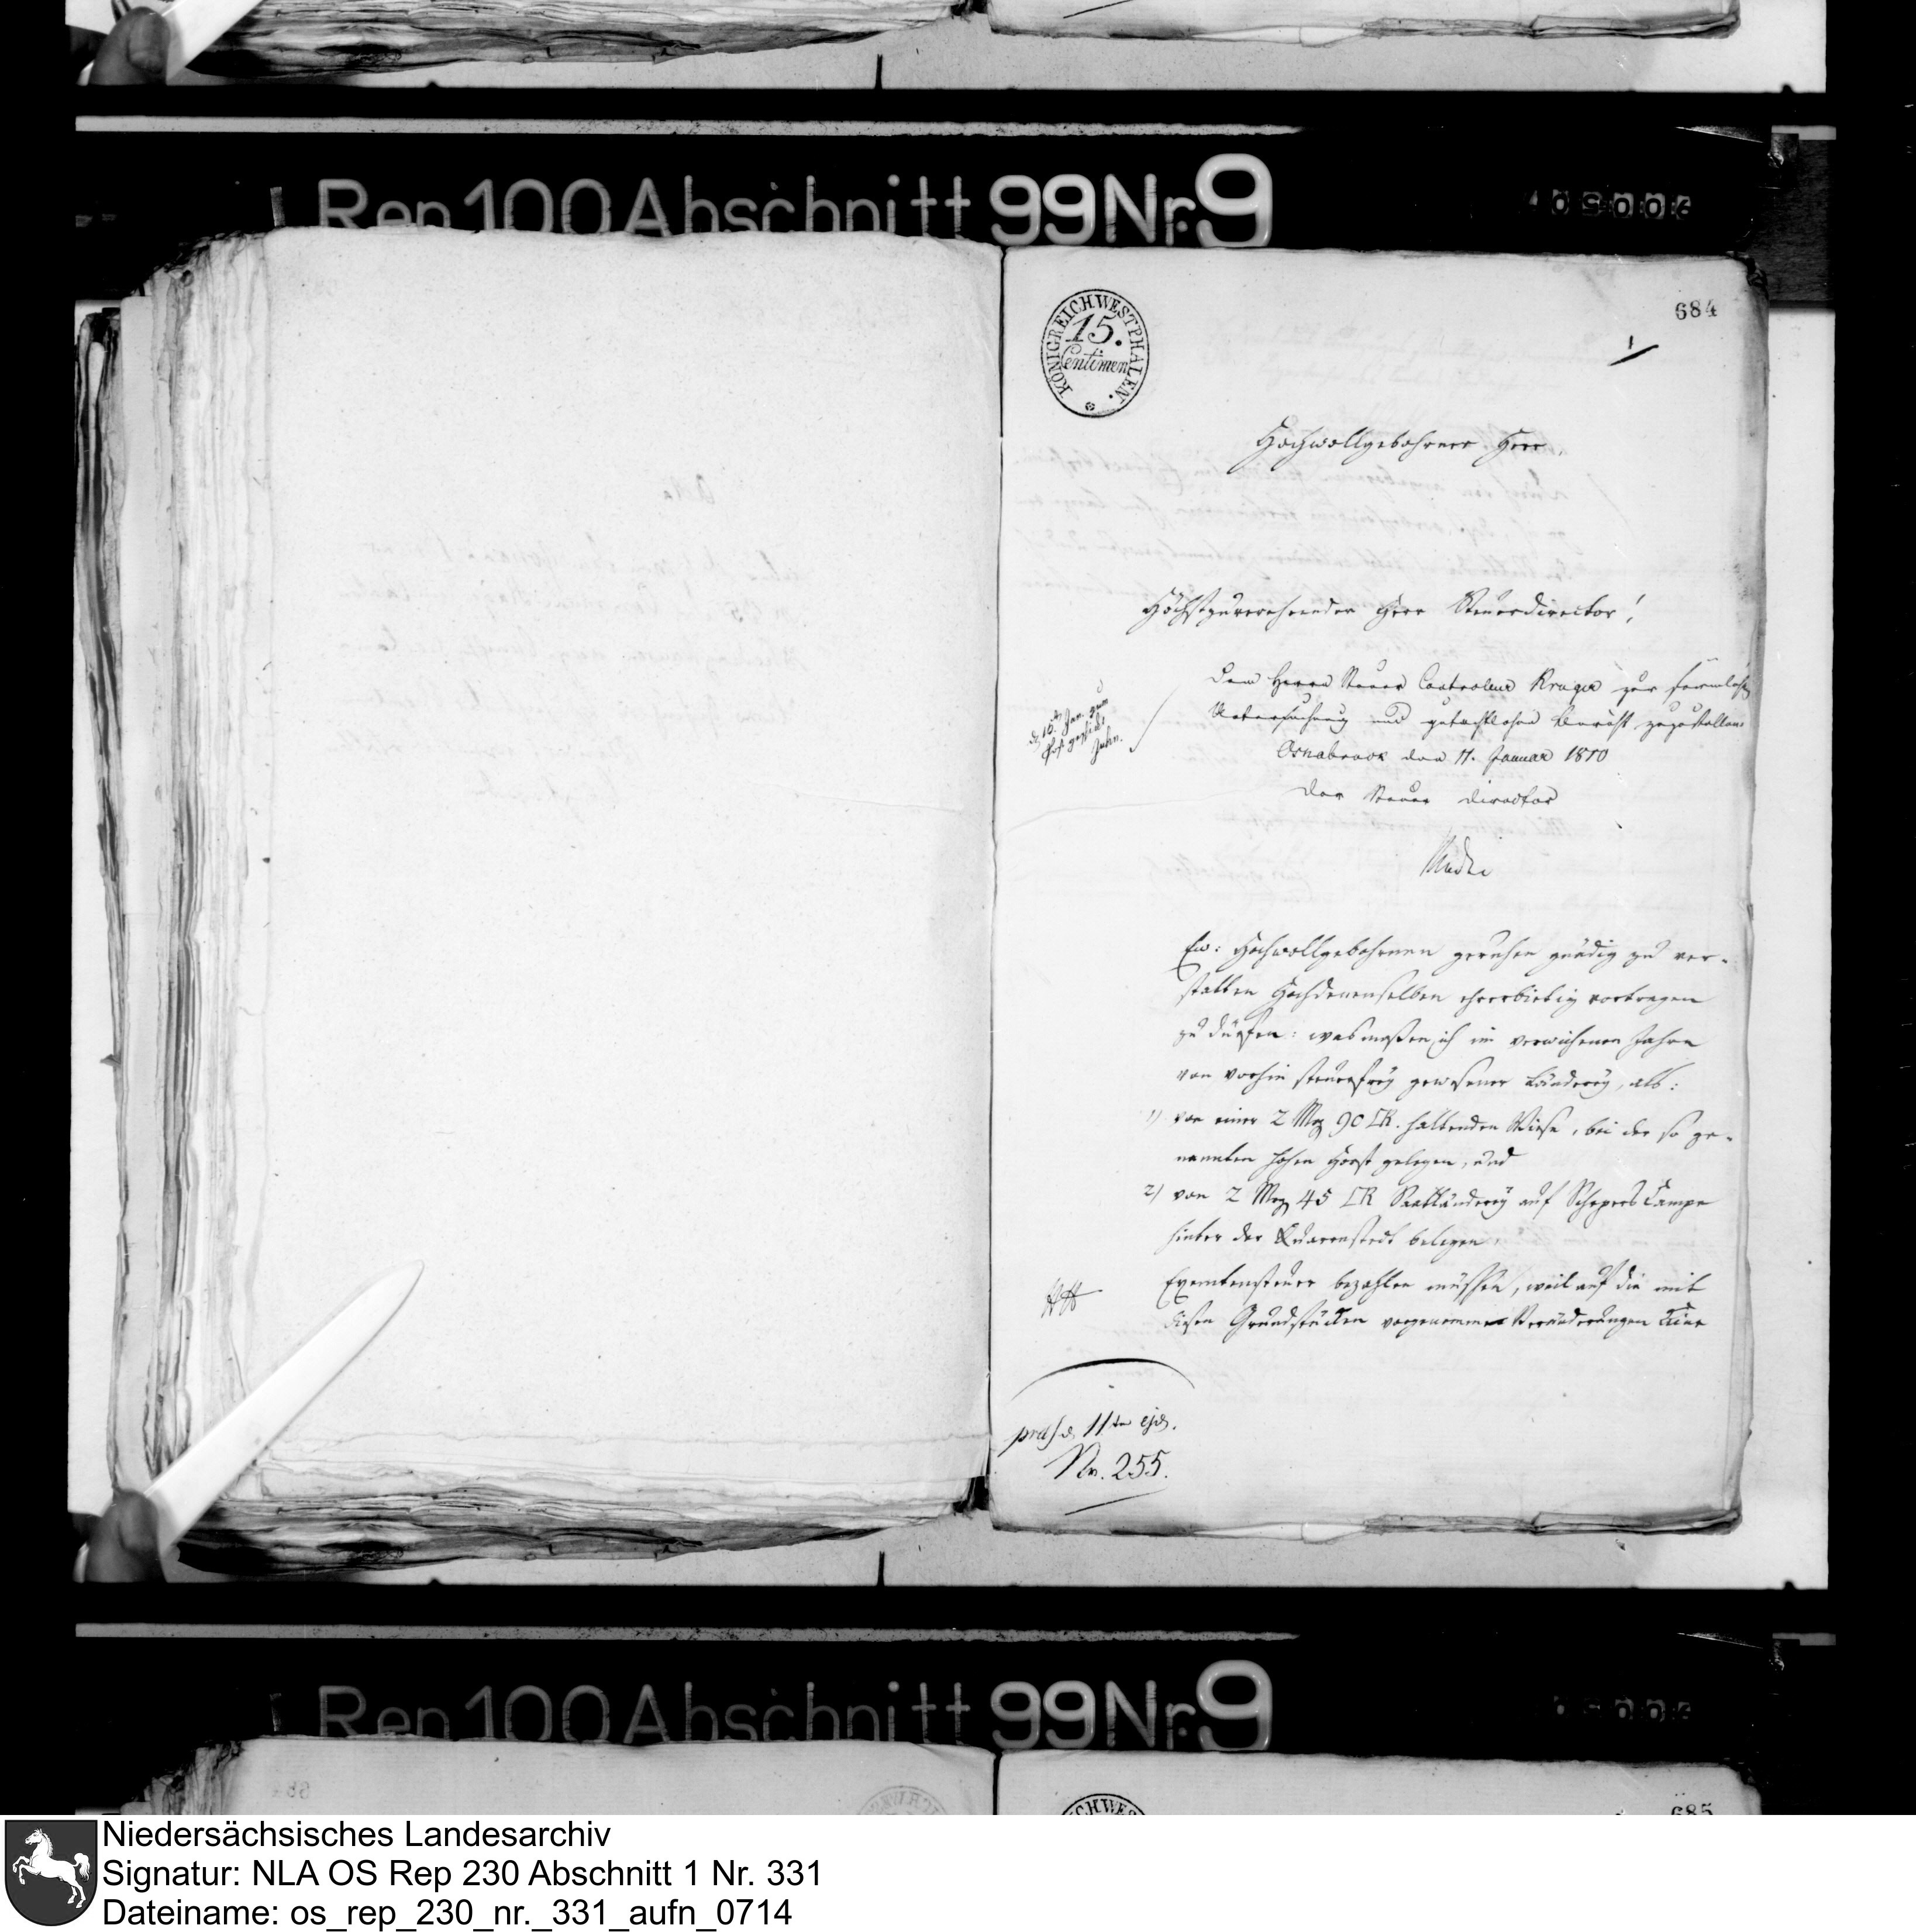 Rep 100 Abschnitt 99 Nr. 9
684
KÖNIGREICH WESTPHALEN.
15.
Centimen
1
Hochwollgebohrner Herr,
Höchstzuverehrender Herr Steuerdirector!
Dem Herrn Steuer Controleur Kruger zur förmlichen
Untersuchung und gutachtlichen Bericht zuzustellen.
Osnabrück den 11. Januar 1810
Der Steuer Director
Ew: Hochwollgebohrnen geruhen gnädig zu ver-
statten Hochdenenselben ehrerbietig vortragen
zu dürfen: wasmaßen ich im verwichenen Jahre
von vorhin steuerfrey gewesener Länderey, als:
1) von einer 2 Mg 90 □R. haltenden Wiese, bei der so ge-
nannten hohen Horst gelegen, und
2) von 2 Mg 45 □R Saatländerey auf Schepers Campe
hinter der Quarenstedt belegen
Exemtensteuer bezahlen müssen, weil auf die mit
diesen Grundstücken vorgenommen Veränderungen keine
praes. d. 11ten ejd.
Nr. 255.
Rep 100 Abschnitt 99 Nr. 9
685
Niedersächsisches Landesarchiv
Signatur: NLA OS Rep 230 Abschnitt 1 Nr. 331
Dateiname: os_rep_230_nr._331_aufn_0714